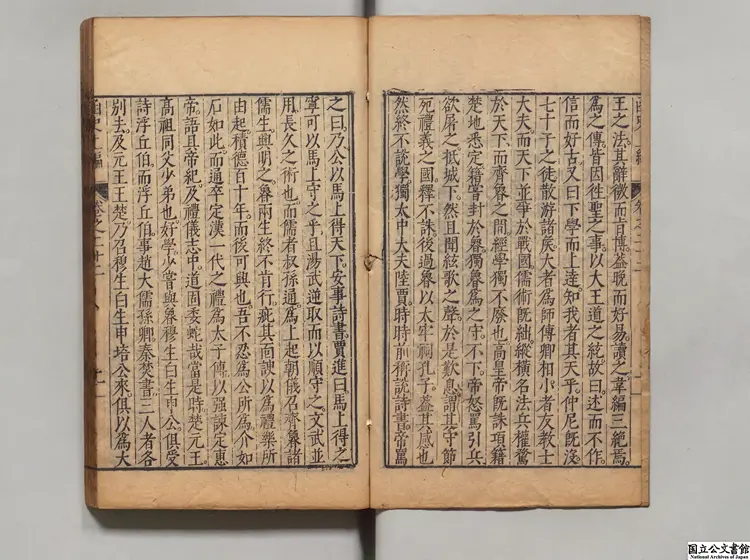 王之法其辭微而旨博蓋晚而好易讀之韋編三絶焉
爲之傳皆因徃聖之事以大王道之統故曰述而不作
信而好古又曰下學而上達知我者其天乎仲尼旣沒
七十子之徒散游諸矦大者爲師傅卿相小者友教士
大夫而天下並爭於戰國儒術旣絀縱橫名法兵權驁
於天下而齊魯之間經學獨不廢也高皇帝旣誅項籍
楚地悉定籍嘗封於魯獨魯爲之守不下帝怒馬引兵
欲屠之抵城下然且聞絃歌之聲於是歎息謂其守節
死禮義之國釋不誅後過魯以太牢祠孔子蓋其感也
然終不說學獨太中大夫陸賈時時前術說詩書帝罵
之曰乃公以馬上得天下安事詩書賈進曰馬上得之
寧可以馬上守之乎且湯武逆取而以順守之文武並
用長久之術也而儒者叔孫通爲上起朝儀召齊魯諸
儒生與明之魯兩生終不肯行疵其面諛以爲禮樂所
由起積德百十年而後可興也吾不忍爲公所爲介如
石如此而通卒定漢一代之禮爲太子傅以强諫定惠
帝語且帝紀及禮儀志中道固委蛇哉當是時楚元王
高祖同父少弟也好學少嘗與魯穆生白生申公俱受
詩浮丘伯而浮丘伯事趙大儒孫卿秦焚書三人者各
別去及元王王楚乃召穆生白生申培公來俱以爲大
函史上編
卷之二十二
国立公文書館
National Archives of Japan